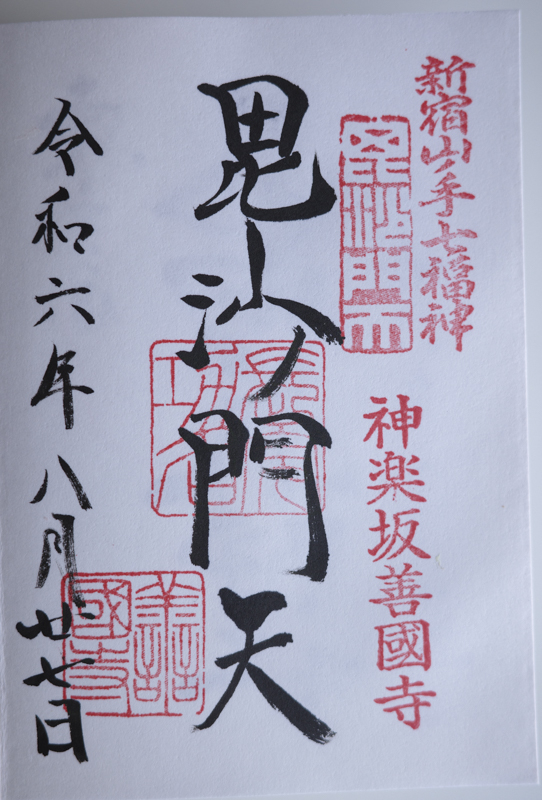 新宿山ノ手七福神
神楽坂善國寺
毘沙門天
毘沙門天
令和六年八月廿七日
善國寺